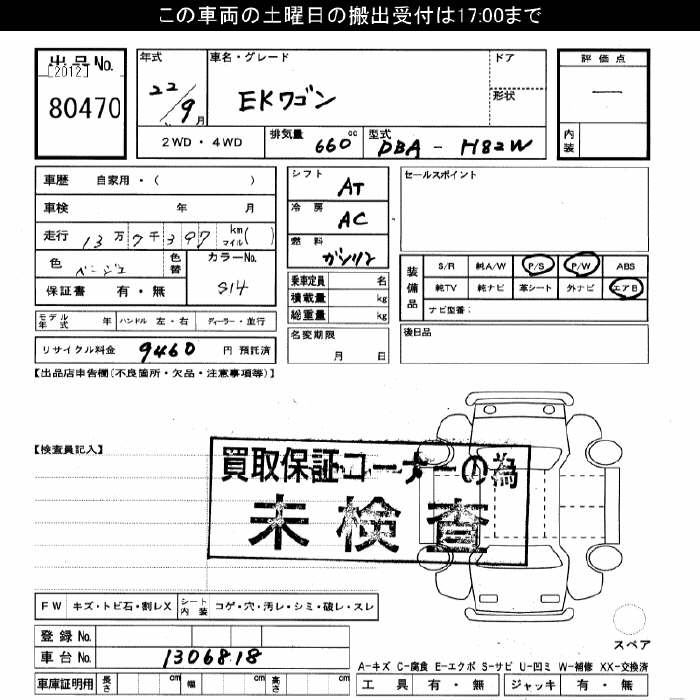 この車両の土曜日の搬出受付は17:00まで
出品No.
[2012]
80470
年式
22/9月
車名・グレード
EKワゴン
ドア
形状
2WD・4WD
排気量 660cc
型式 DBA-H82W
評価点
—
内装
車歴 自家用・( )
車検 年 月
走行 13万7千397 km マイル( )
色 ベージュ 色替
カラーNo. S14
保証書 有・無
モデル年式 年 ハンドル 左・右 ディーラー・並行
リサイクル料金 9460 円 預託済
シフト AT
冷房 AC
燃料 ガソリン
乗車定員 名
積載量 kg
総重量 kg
名変期限
月 日
セールスポイント
装備品
S/R 純A/W P/S P/W ABS
純TV 純ナビ 革シート 外ナビ エアB
ナビ型番:
後日品
【出品店申告欄(不良箇所・欠品・注意事項等)】
【検査員記入】
買取保証コーナーの為
未検査
FW キズ・トビ石・割レX シート内装 コゲ・穴・汚レ・シミ・破レ・スレ
スペア
登録No.
車台No. 1306818
A-キズ C-腐食 E-エクボ S-サビ U-凹ミ W-補修 XX-交換済
車庫証明用 長さ cm 幅 cm 高さ cm
工具 有・無 ジャッキ 有・無